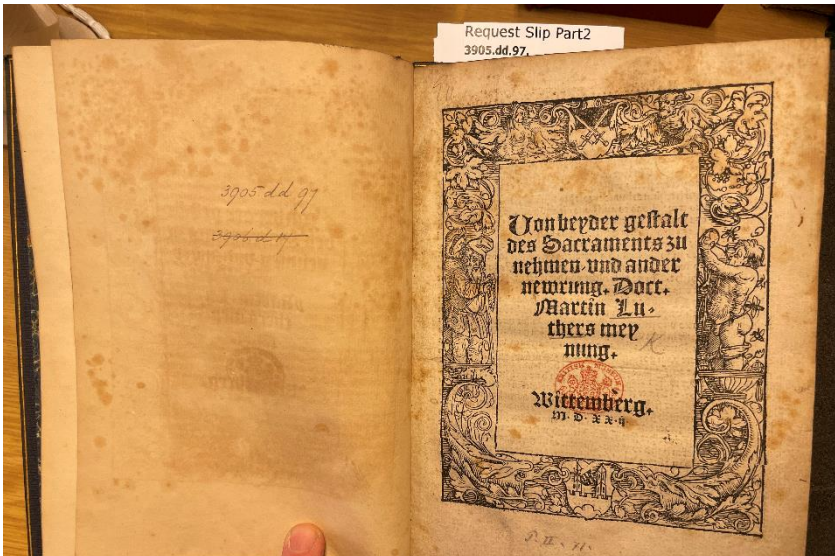 Request Slip Part2
3905.dd.97.
3905 dd 97
Von beyder gestalt
des Sacraments zu
nehmen vnd ander
newrung. Doct.
Martin Lu-
thers mey
nung.
Wittemberg.
M. D. XX. ij